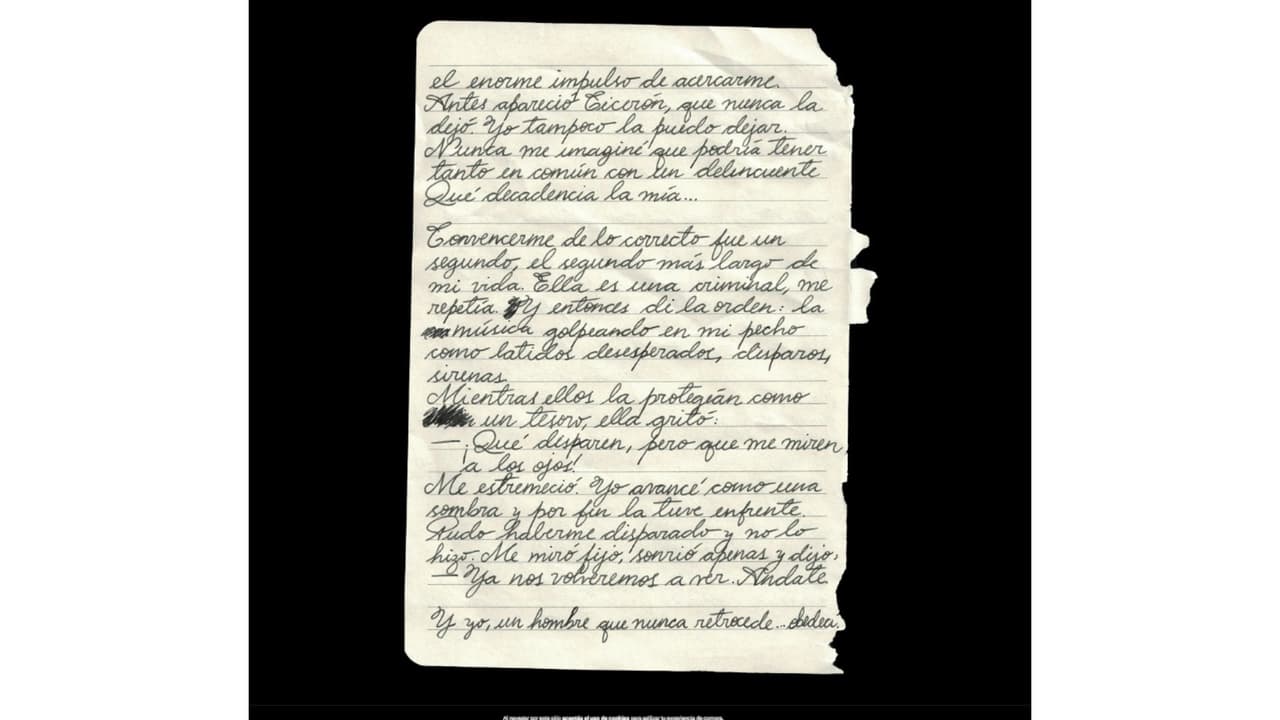 el enorme impulso de acercarme.
Antes apareció Cicerón, que nunca la
dejó. Yo tampoco la puedo dejar.
Nunca me imaginé que podría tener
tanto en común con un delincuente
Qué decadencia la mía...
Convencerme de lo correcto fue un
segundo, el segundo más largo de
mi vida. Ella es una criminal, me
repetía. Y entonces di la orden: la
música golpeando en mi pecho
como latidos desesperados, disparos,
sirenas.
Mientras ellos la protegían como
un tesoro, ella gritó:
— ¡Qué disparen, pero que me miren
a los ojos!
Me estremeció. Yo avancé como una
sombra y por fin la tuve enfrente.
Pudo haberme disparado y no lo
hizo. Me miró fijo, sonrió apenas y dijo:
— Ya nos volveremos a ver. Andate
Y yo, un hombre que nunca retrocede... obedecí.
Al navegar por este sitio aceptás el uso de cookies para agilizar tu experiencia de compra.